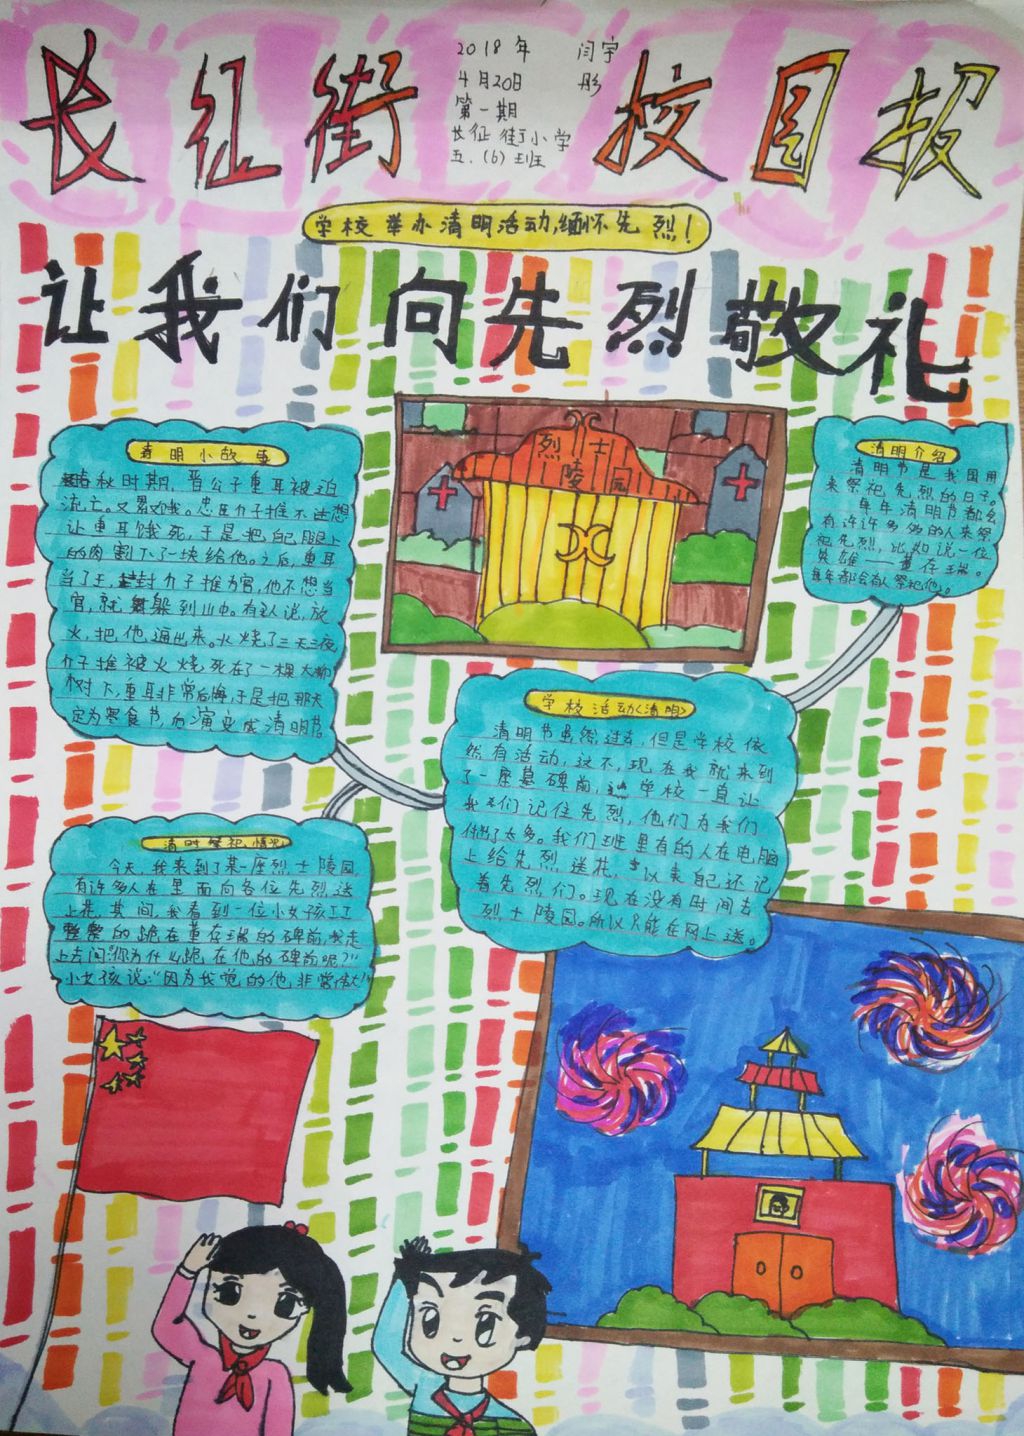 长征街校园报
2018年
4月20日
第一期
长征街小学
五.(6)班
闫宇
彤
学校举办清明活动,缅怀先烈!
让我们向先烈敬礼
清明小故事
春秋时期,晋公子重耳被迫
流亡。又累又饿。忠臣介子推不
让重耳饿死,于是把自己腿上
的肉割下了一块给他。之后,重耳
当了王,封介子推为官,他不想当
官,就躲到山中。有人说,放
火,把他逼出来。火烧了三天三夜
介子推被火烧死在了一棵大柳
树下,重耳非常后悔,于是把那天
定为寒食节,而演变成清明节
烈士
陵园
清明介绍
清明节是我国用
来祭祀先烈的日子。
每年清明节都会
有许许多多的人来祭
祀先烈,比如说一位
英雄——董存瑞。
每年都会有人祭祀他。
学校活动〈清明〉
清明节虽然过去,但是学校依
然有活动,这不,现在我就来到
了一座墓碑前,学校一直让
我们记住先烈,他们为我们
付出了太多。我们班里有的人在电脑
上给先烈送花,以表自己还记
着先烈们。现在没有时间去
烈士陵园。所以只能在网上送。
清时祭祀情况
今天,我来到了某一座烈士陵园,
有许多人在里面向各位先烈送
上花,其间,我看到一位小女孩工工
整整的跪在董存瑞的碑前,我走
上去问:“你为什么跪在他的碑前呢?”
小女孩说:“因为我觉的他非常伟大”